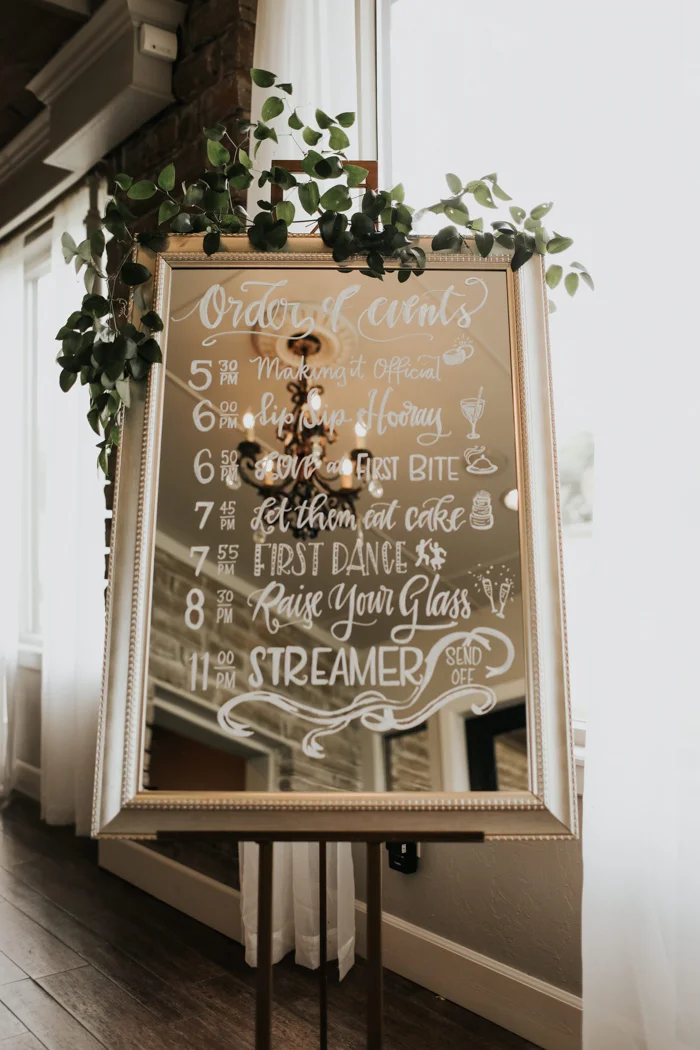 Order of events
5 30 PM Making it Official
6 00 PM Sip Sip Hooray
6 50 PM LOVE at FIRST BITE
7 45 PM Let them eat cake
7 55 PM FIRST DANCE
8 30 PM Raise Your Glass
11 00 PM STREAMER SEND OFF